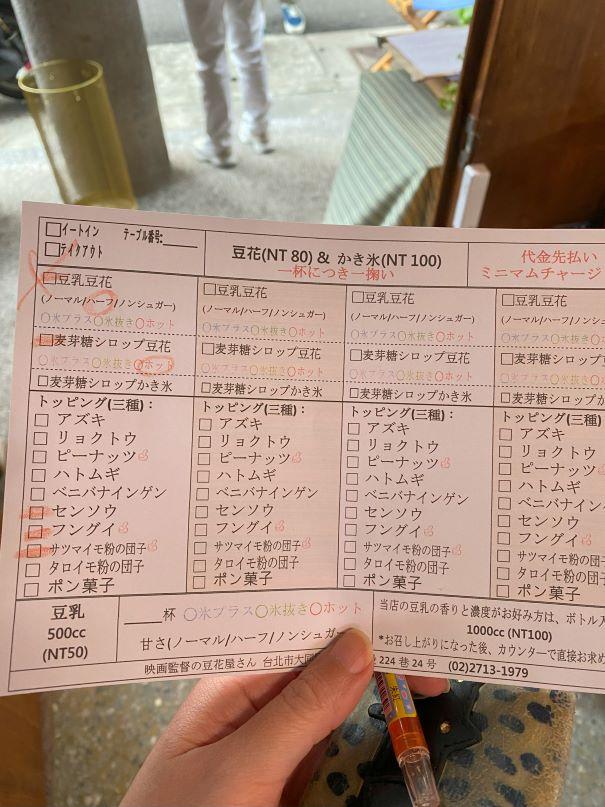 □イートイン テーブル番号:______
□テイクアウト
豆花(NT 80) & かき氷(NT 100)
一杯につき一掬い
代金先払い
ミニマムチャージ
□豆乳豆花
(ノーマル/ハーフ/ノンシュガー)
○氷プラス○氷抜き○ホット
□麦芽糖シロップ豆花
○氷プラス○氷抜き○ホット
□麦芽糖シロップかき氷
トッピング(三種)：
□アズキ
□リョクトウ
□ピーナッツ
□ハトムギ
□ベニバナインゲン
□センソウ
□フングイ
□サツマイモ粉の団子
□タロイモ粉の団子
□ポン菓子
□豆乳豆花
(ノーマル/ハーフ/ノンシュガー)
○氷プラス○氷抜き○ホット
□麦芽糖シロップ豆花
○氷プラス○氷抜き○ホット
□麦芽糖シロップかき氷
トッピング(三種)：
□アズキ
□リョクトウ
□ピーナッツ
□ハトムギ
□ベニバナインゲン
□センソウ
□フングイ
□サツマイモ粉の団子
□タロイモ粉の団子
□ポン菓子
□豆乳豆花
(ノーマル/ハーフ/ノンシュガー)
○氷プラス○氷抜き○ホット
□麦芽糖シロップ豆花
○氷プラス○氷抜き○ホット
□麦芽糖シロップかき氷
トッピング(三種)：
□アズキ
□リョクトウ
□ピーナッツ
□ハトムギ
□ベニバナインゲン
□センソウ
□フングイ
□サツマイモ粉の団子
□タロイモ粉の団子
□ポン菓子
□豆乳豆花
(ノーマル/ハーフ/ノンシ
○氷プラス○氷抜き○
□麦芽糖シロップ豆
○氷プラス○氷抜き○
□麦芽糖シロップか
トッピング(三種)：
□アズキ
□リョクトウ
□ピーナッツ
□ハトムギ
□ベニバナイン
□センソウ
□フングイ
□サツマイモ粉の団
□タロイモ粉の団子
□ポン菓子
豆乳
500cc
(NT50)
____杯 ○氷プラス○氷抜き○ホット
甘さ(ノーマル/ハーフ/ノンシュガー
当店の豆乳の香りと濃度がお好み方は、ボトル入
1000cc (NT100)
*お召し上がりになった後、カウンターで直接お求め
映画監督の豆花屋さん 台北市大同 224 巷 24 号 (02)2713-1979